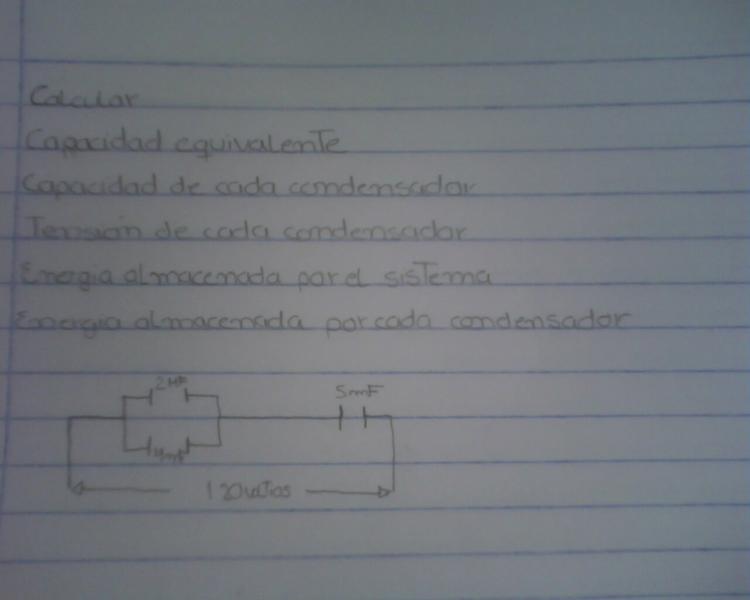 Calcular
Capacidad equivalente
Capacidad de cada condensador
Tensión de cada condensador
Energia almacenada por el sistema
Energia almacenada por cada condensador
5mF
120voltios